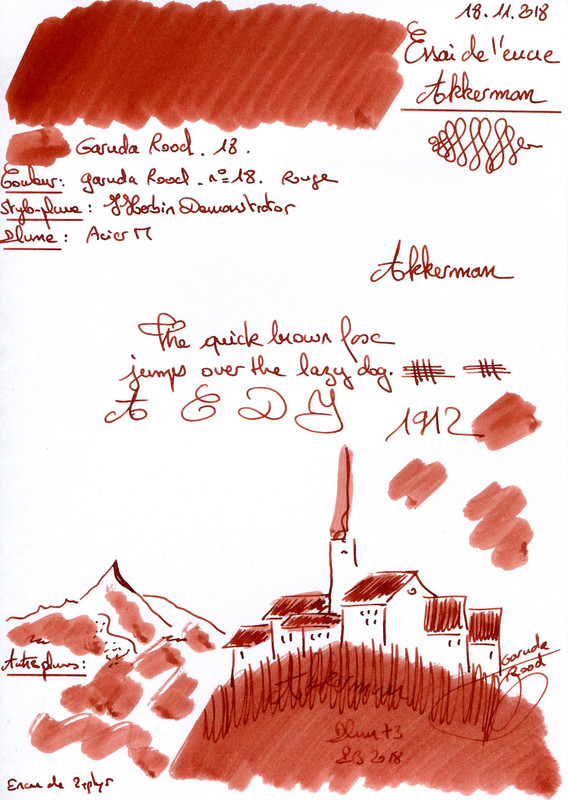 18.11.2018
Essai de l'encre
Akkerman
Garuda Rood. 18.
Couleur: Garuda Rood. n°18. Rouge
Stylo-plume: J Herbin Demonstrator
Plume: Acier M
Akkerman
The quick brown fox
jumps over the lazy dog.
A E D Y 1912
Garuda
Rood
Autre plume:
Akkerman
2018
Encre de Zephyr